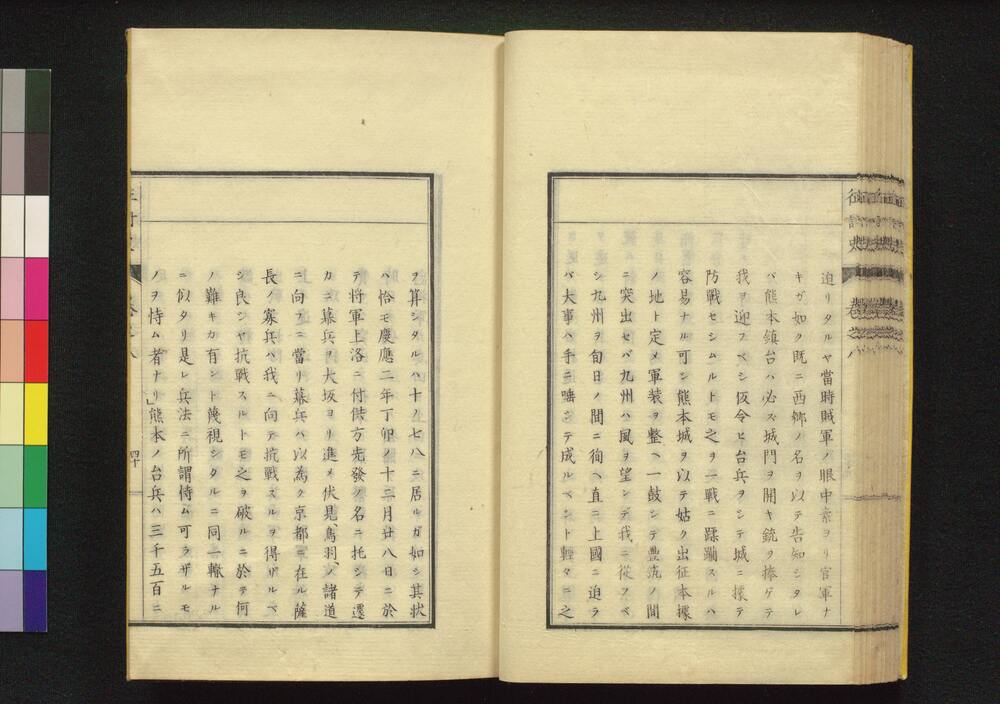 迫リタルヤ當時賊軍ノ眼中素ヨリ官軍ナ
キガ如ク既ニ西郷ノ名ヲ以テ告知シタレ
バ熊本鎮台ハ必ズ城門ヲ開キ銃ヲ捧ゲテ
我ヲ迎フベシ仮令ヒ台兵ヲシテ城ニ據テ
防戦セシムルトモ之ヲ一戰ニ蹂躪スルハ
容易ナル可シ熊本城ヲ以テ姑ク出征本據
ノ地ト定メ軍装ヲ整ヘ一鼓シテ豊筑ノ間
ニ突出セバ九州ハ風ヲ望ンデ我ニ從フベ
シ九州ヲ旬日ノ間ニ徇ヘ直ニ上國ニ迫ラ
バ大事ハ手ニ唾シテ成ルベシト輕々ニ之
ヲ算シタルハ十ノ七八ニ居ルガ如シ其状
ハ恰モ慶應二年丁卯ノ十二月廿八日ニ於
テ将軍上洛ニ付供方先發ノ名ニ托シテ遷
カニ幕兵ヲ大坂ヨリ進メ伏見、鳥羽、ノ諸道
ニ向フニ當リ幕兵ハ以為ク京都ニ在ル薩
長ノ寡兵ハ我ニ向テ抗戦スルヲ得ザルベ
シ良シヤ抗戦スルトモ之ヲ破ルニ於テ何
ノ難キカ有ント蔑視シタルニ同一轍ナル
ニ似タリ是レ兵法ニ所謂恃ム可ラザルモ
ノヲ恃ム者ナリ」熊本ノ台兵ハ三千五百ニ
四十